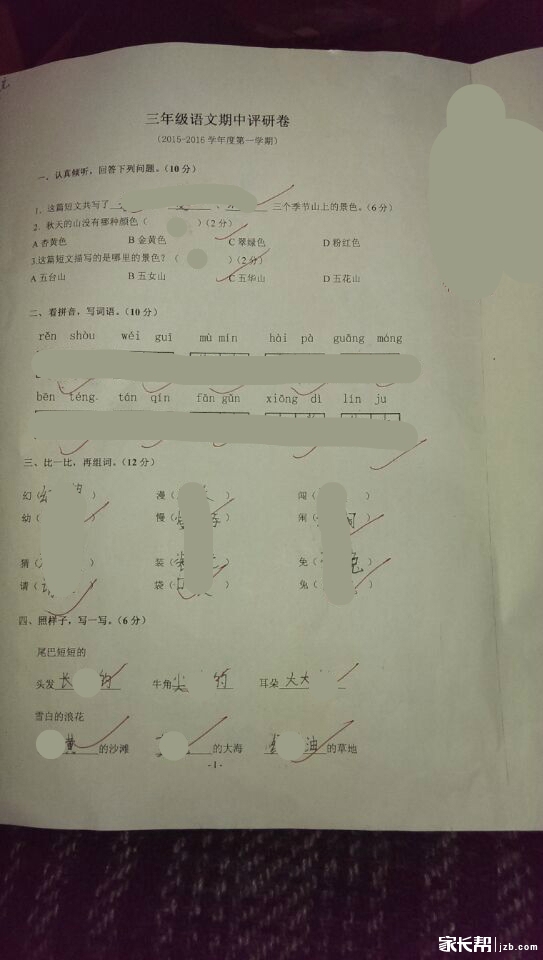 三年级语文期中评研卷
(2015-2016学年度第一学期)
一、认真倾听，回答下列问题。(10分)
1、这篇短文共写了 三个季节山上的景色。(6分)
2．秋天的山没有哪种颜色（ ）(2分)
A 杏黄色 B 金黄色 C 翠绿色 D 粉红色
3.这篇短文描写的是哪里的景色？（ ）(2分)
A 五台山 B 五女山 C 五华山 D 五花山
二、看拼音，写词语。(10分)
rěn shòu wéi guī mù mín hài pà guāng máng
bēn téng tán qín fān gǔn xiōng dì lín jū
三、比一比，再组词。(12分)
幻（ ） 漫（ ） 闯（ ）
幼（ ） 慢（ ） 闲（ ）
猜（ ） 装（ ） 免（ ）
请（ ） 袋（ ） 兔（ ）
四、照样子，写一写。(6分)
尾巴短短的
头发 长 的 牛角 尖 的 耳朵 大大
雪白的浪花
黄 的沙滩 的大海 油 的草地
- 1 -
家长帮 jzb.com